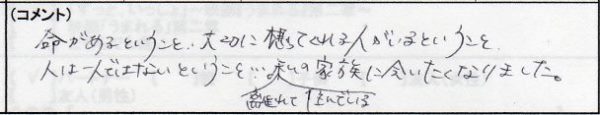 (コメント)
命があるということ、大切に想ってくれる人がいるということ、
人は一人ではないということ…私の家族に会いたくなりました。
離れて住んでいる